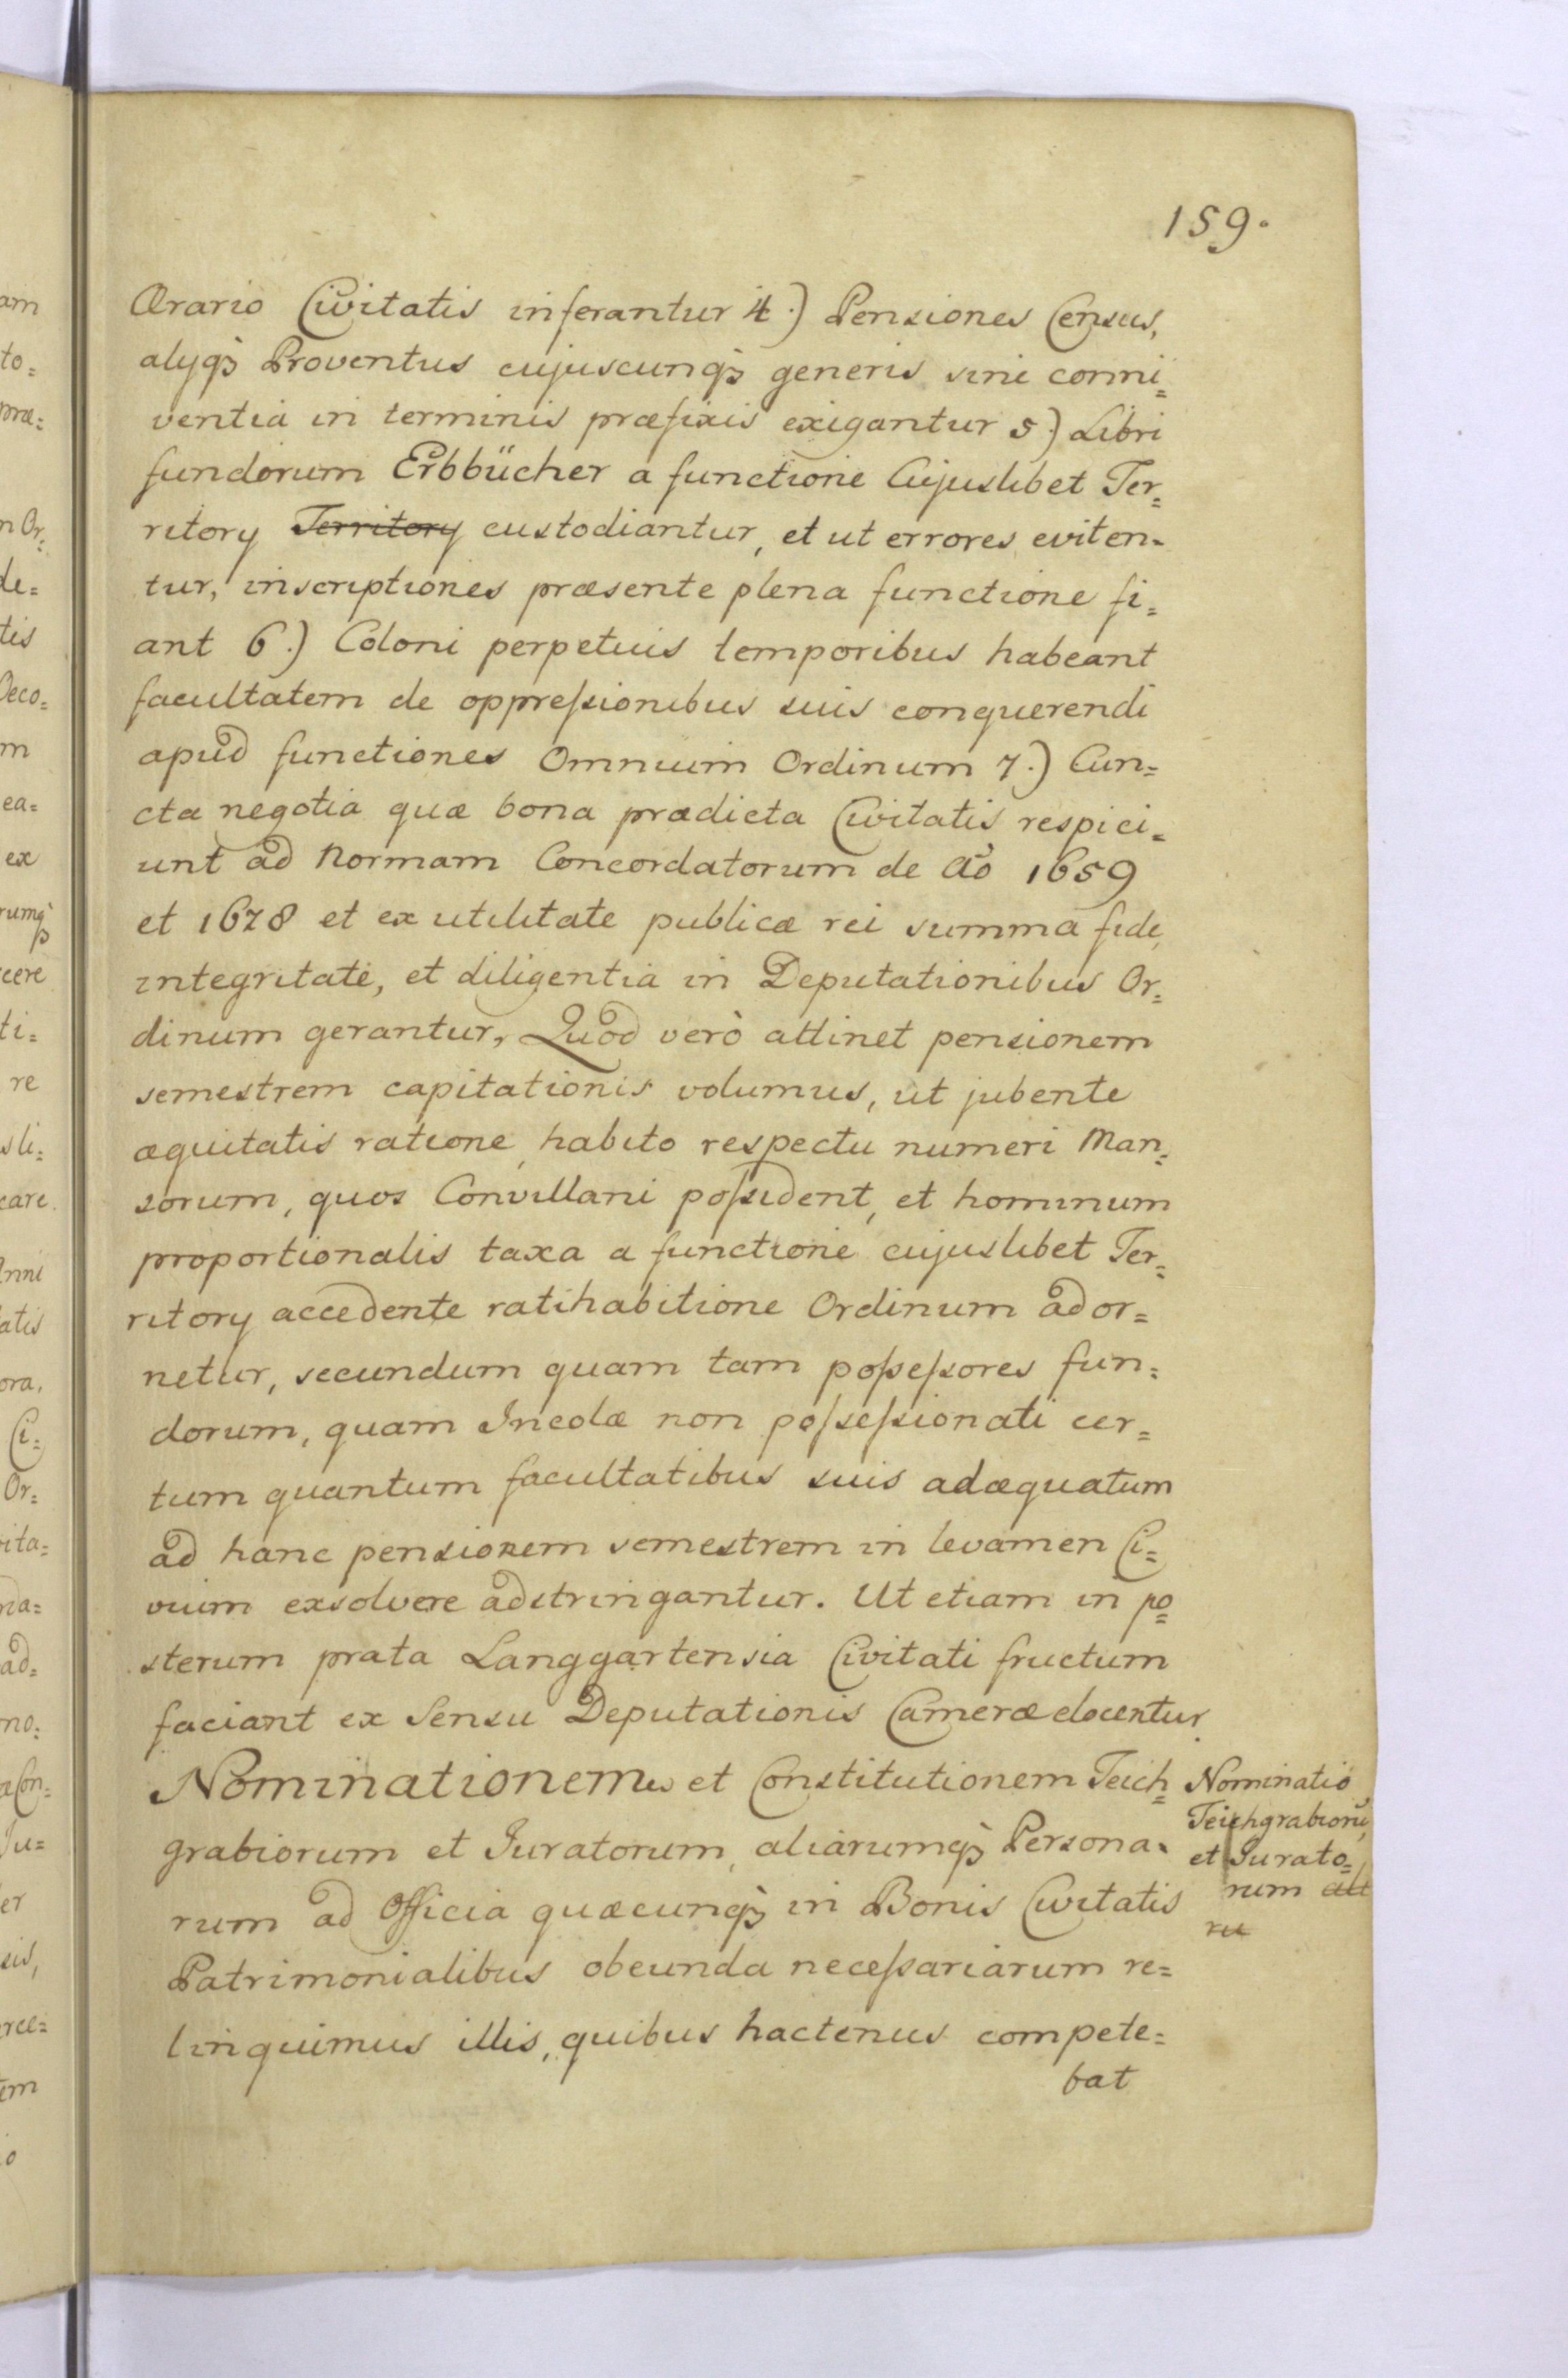 159.
Ærario Civitatis inferantur 4.) Pensiones Census,
alyq3 Proventus cujuscunq3 generis sine conni=
ventia in terminis præfixis exigantur 5.) Libri
fundorum Erbbücher a functione Cujuslibet Ter=
ritory Territory custodiantur, et ut errores eviten=
tur, inscriptiones præsente plena functione fi=
ant 6.) Coloni perpetuis temporibus habeant
facultatem de oppreſsionibus suis conquerendi
apud functiones Omnium Ordinum 7.) Cun=
cta negotia quæ bona prædicta Civitatis respici=
unt ad Normam Concordatorum de Aõ 1659
et 1678 et ex utilitate publicæ rei summa fide,
integritate, et diligentia in Deputationibus Or=
dinum gerantur, Quod verò attinet pensionem
semestrem capitationis volumus, ut jubente
æquitatis ratione, habito respectu numeri Man=
sorum, quos Convillani poſsident, et hominum
proportionalis taxa a functione cujuslibet Ter=
ritory accedente ratihabitione Ordinum ador=
netur, secundum quam tam poſseſsores fun=
dorum, quam Incolæ non poſseſsionati cer=
tum quantum facultatibus suis adæquatum
ad hanc pensionem semestrem in levamen Ci=
vium exsolvere adstringantur. Ut etiam in po=
sterum prata Langgartensia Civitati fructum
faciant ex Sensu Deputationis Cameræ elocentur.
Nominationem et Constitutionem Teich=
grabiorum et Juratorum, aliarumq3 Persona=
rum ad Officia quæcunq3 in Bonis Civitatis
Patrimonialibus obeunda neceſsariarum re=
linquimus illis, quibus hactenus compete=
bat
Nominatio
Teichgrabiorũ,
et Jurato=
rum